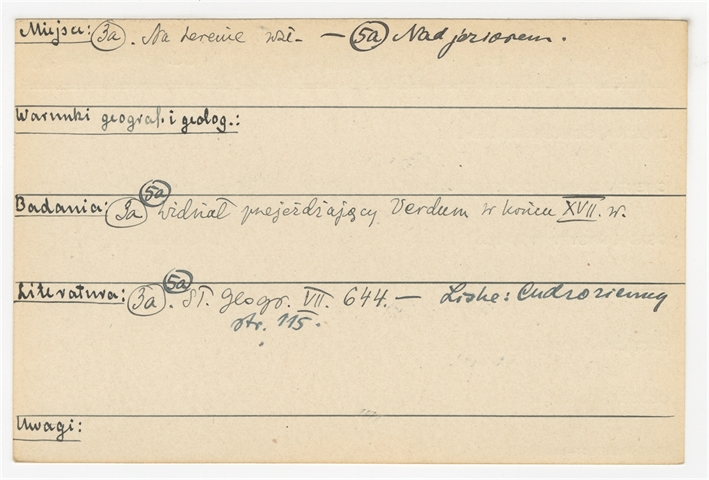 Miejsce: 3a. Na terenie wsi — 5a Nad jeziorem.
Warunki geograf. i geolog.:
Badania: 3a 5a Widział przejeżdżający Verdum w końcu XVII. w.
Literatura: 3a. 5a Sł. geogr. VII. 644. — Liske: Cudzoziemcy
str. 115.
Uwagi: